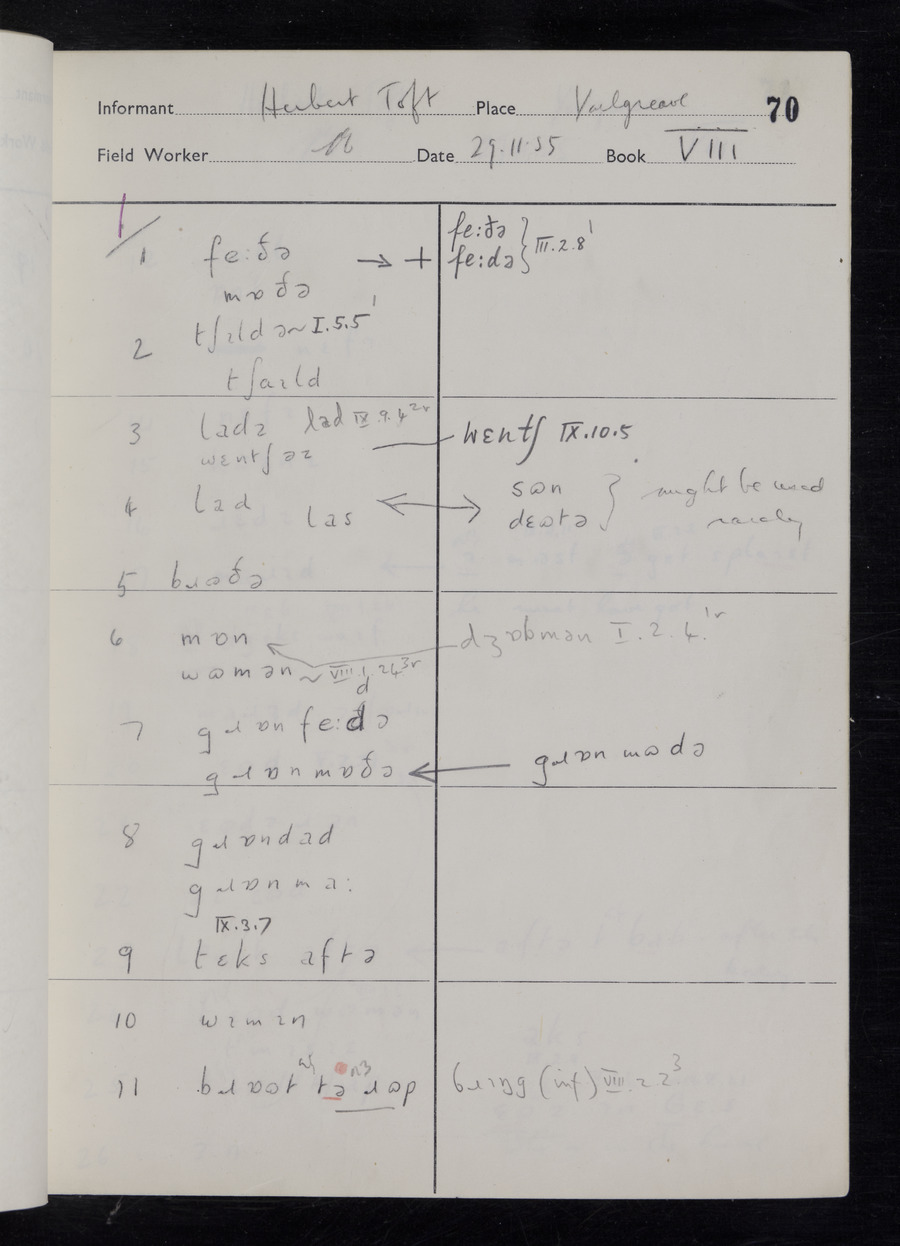 Informant Herbert Toft Place Youlgreave 70
Field Worker Date 29.11.55 Book VIII
1 feːðə → + feːðə } III.2.8¹
feːdə
mɒðə
2 tʃɪld ə ~ I.5.5¹
tʃaɪld
3 ladz lad IX.9.4²ʳ
wɛntʃəz wɛntʃ IX.10.5
4 lad las ↔ sɷn } might be used
dɛɷtə rarely
5 bɹɷðə
6 mɒn dʒɒbmən I.2.4.¹ʳ
wɷmən ~ VIII.1.24³ʳ
d
7 gɹɒnfeːdə
gɹɒnmɷðə ← gɹɒnmɷdə
8 gɹɒndad
gɹɒnmaː
IX.3.7
9 tɛks aftə
10 wɪmɪn
11 bɹɷɷt tə ɹɷp bɹɪŋg (inf) VIII.2.2³